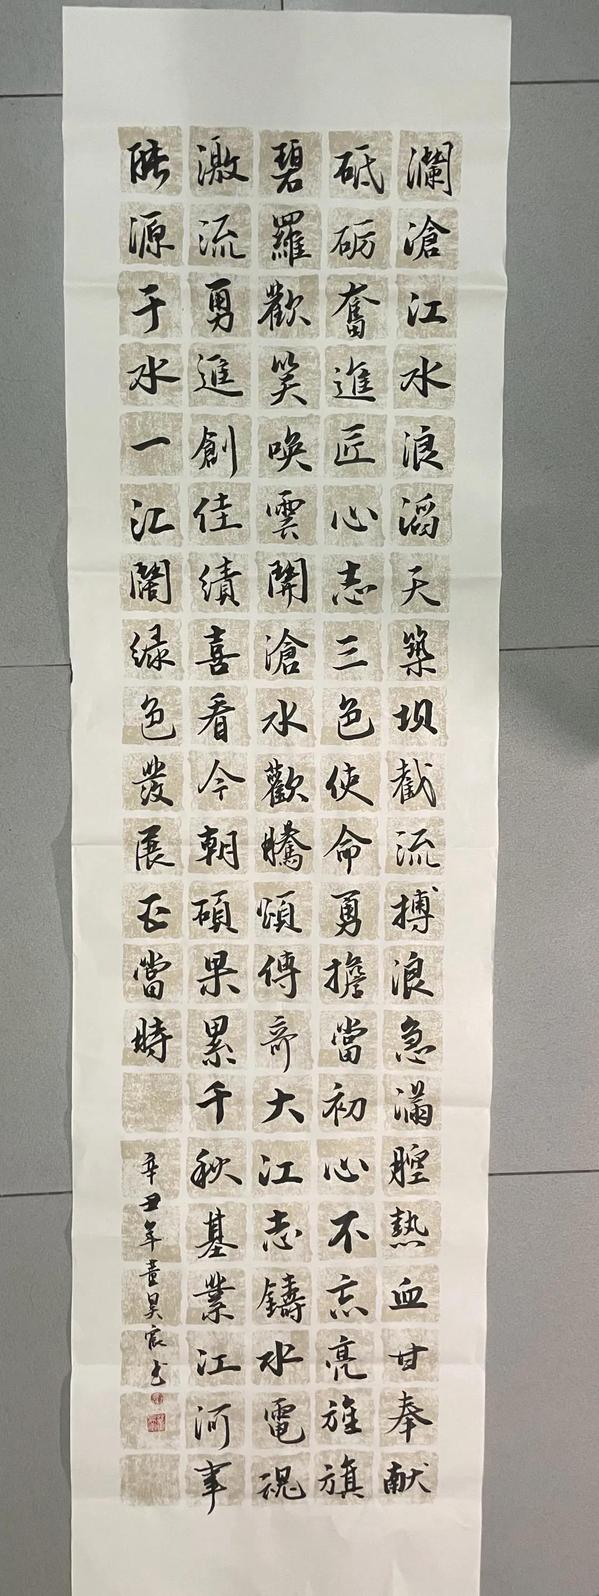 瀾滄江水浪滔天築坝截流搏浪急滿腔熱血甘奉献
砥砺奮進匠心志三色使命勇擔當初心不忘亮旌旗
碧羅歡笑唤雲開滄水歡騰頌傳奇大江志鑄水電魂
激流勇進創佳績喜看今朝碩果累千秋基業江河事
能源于水一江闊緑色發展正當時
辛丑年董昊宸书